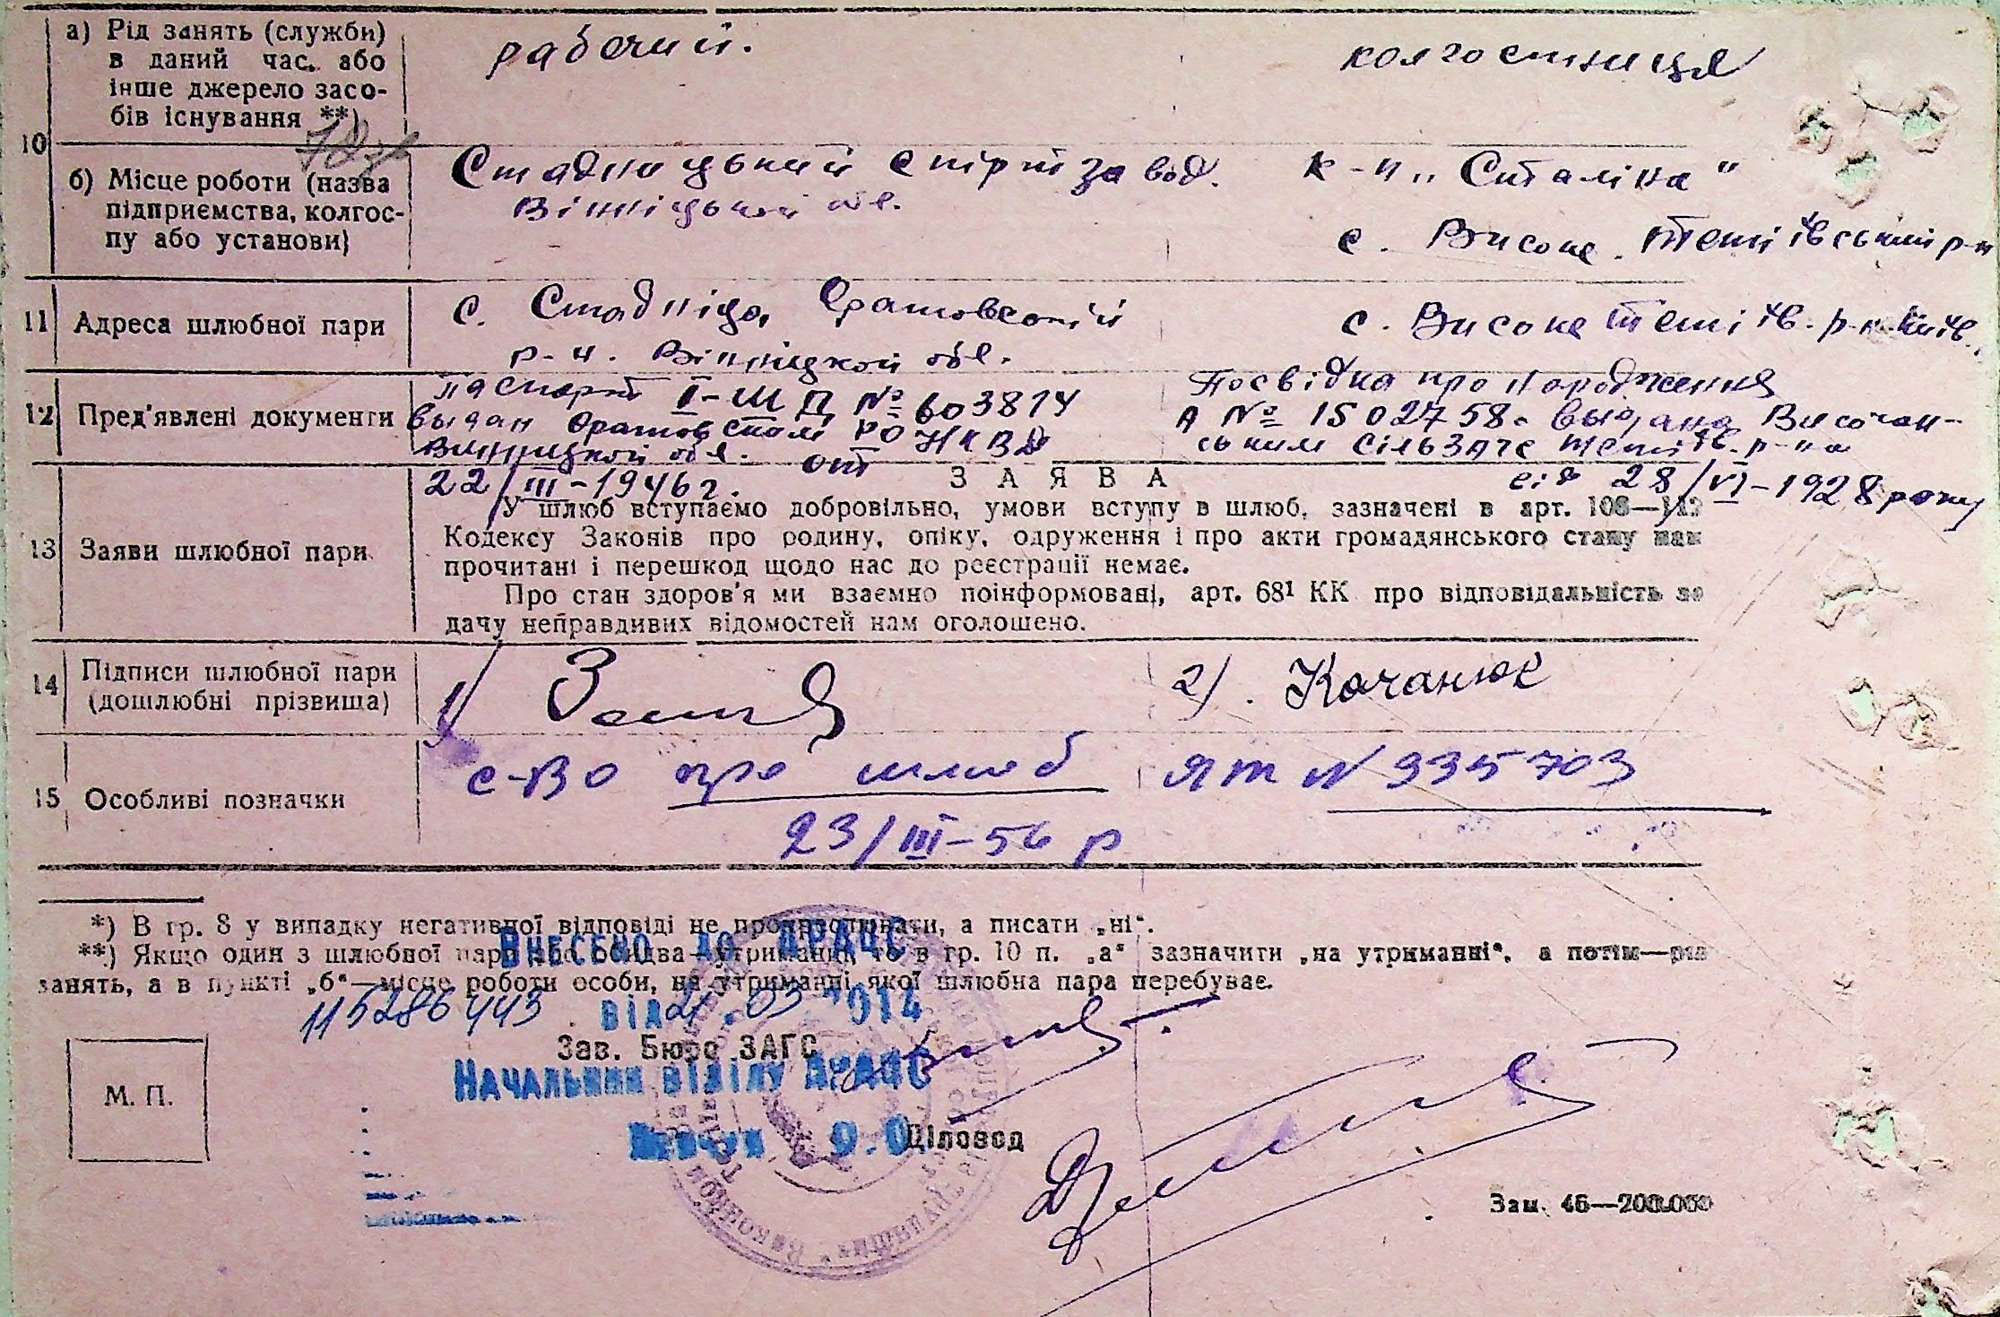 10
а) Рід занять (служби)
в даний час. або
інше джерело засо-
бів існування **)
рабочий.
колгостница
б) Місце роботи (назва
підприємства, колгос-
пу або установи)
Стадницький спіртзавод.
Вінніцької обл.
к-п „Сталіна"
с. Високе. Тетіївський р-н
11
Адреса шлюбної пари
с. Стадніца, Оратовсокій
р-н. Вінницкой обл.
с. Високе Тетіїв. р-н. Київ.
12
Пред'явлені документи
паспорт II-ШД № 603814
выдан Оратовском РО НКВД
Винницкой обл. от
22/III-1946г.
Посвідка про народження
А № 1502758. выдана Височан-
ським сільЗАГС Тетіїв. р-на
від 28/VI-1928 року
ЗАЯВА
13
Заяви шлюбної пари.
У шлюб вступаємо добровільно, умови вступу в шлюб, зазначені в арт. 108—112
Кодексу Законів про родину, опіку, одруження і про акти громадянського стану нам
прочитані і перешкод щодо нас до реєстрації немає.
Про стан здоров'я ми взаємно поінформовані, арт. 68¹ КК про відповідальність за
дачу неправдивих відомостей нам оголошено.
14
Підписи шлюбної пари
(дошлюбні прізвища)
1)
2). Качанюк
15
Особливі позначки
с-во про шлюб ЯТ N 335703
23/III-56 р
*) В гр. 8 у випадку негативної відповіді не прокреслювати, а писати „ні".
**) Якщо один з шлюбної пари або обидва—утриманці, то в гр. 10 п. „а" зазначити „на утриманні", а потім—рід
занять, а в пункті „б"—місце роботи особи, на утриманні якої шлюбна пара перебуває.
Внесено до ДРАЦС
115286443
від 21.03 2014
Зав. Бюро ЗАГС
Начальник відділу ДРАЦС
О.О
Діловод
М. П.
Зам. 46—200.000